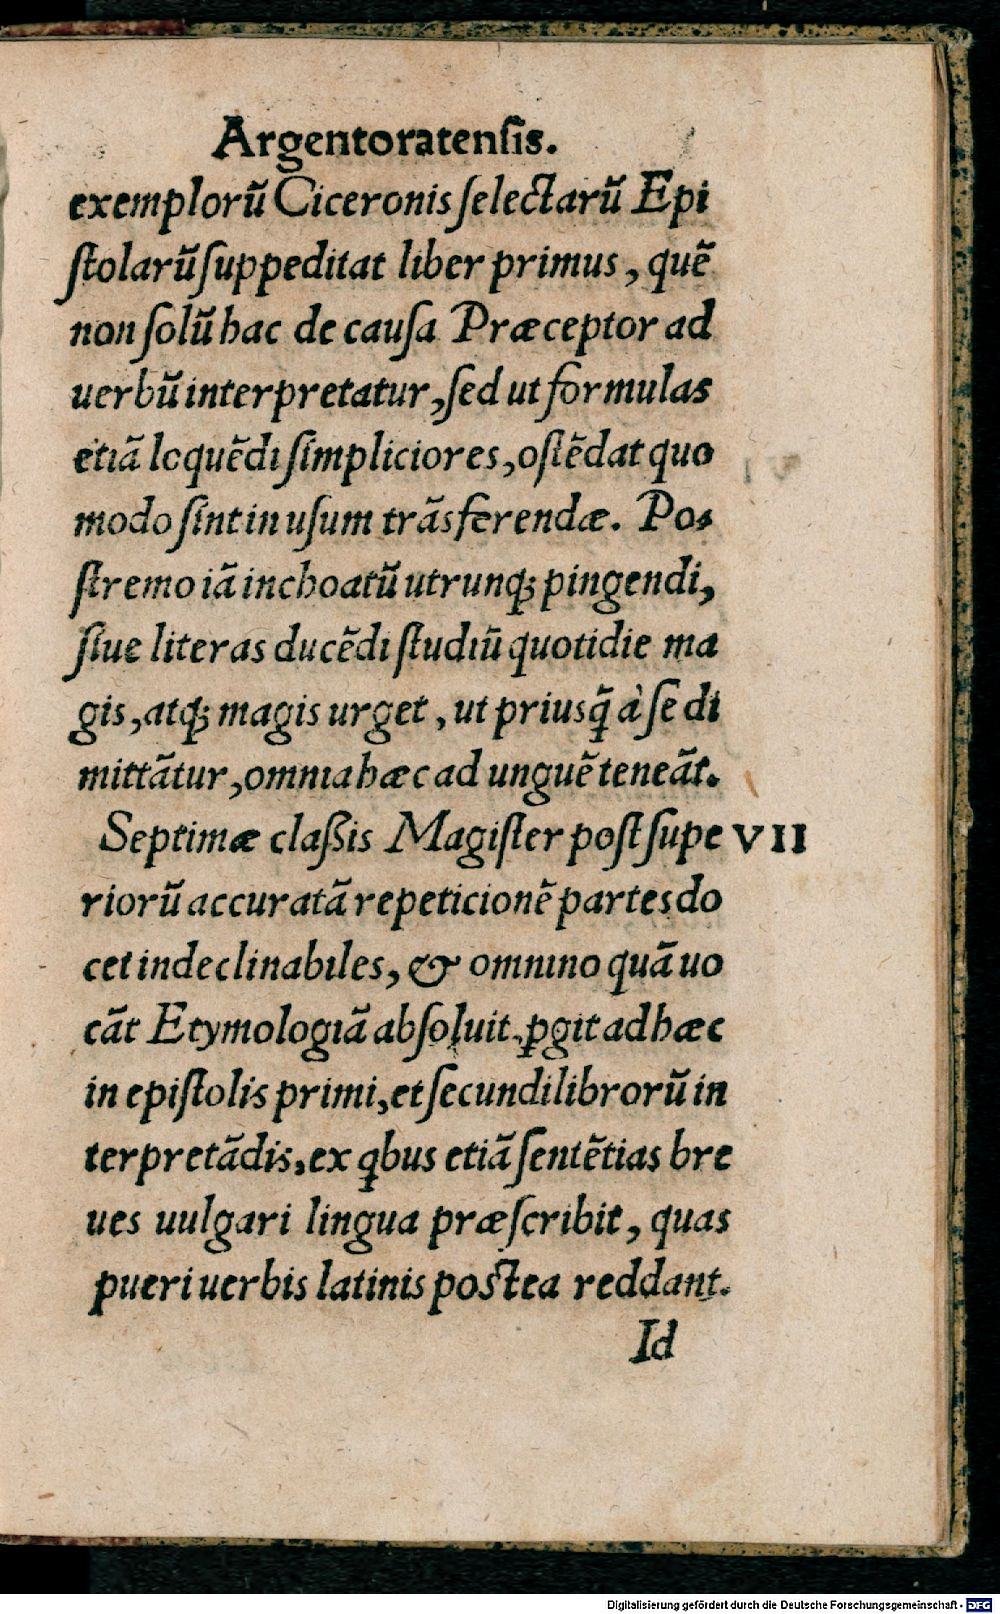 Argentoratensis.
exemplorũ Ciceronis selectarũ Epi
stolarũ suppeditat liber primus, quẽ
non solũ hac de causa Præceptor ad
uerbũ interpretatur, sed ut formulas
etiã loquẽdi simpliciores, ostẽdat quo
modo sint in usum trãsferendæ. Po-
stremo iã inchoatũ utrunq; pingendi,
siue literas ducẽdi studiũ quotidie ma
gis, atq; magis urget, ut priusq̃ à se di
mittãtur, omnia hæc ad unguẽ teneãt.
Septimæ claßis Magister post supe VII
riorũ accuratã repeticionẽ partes do
cet indeclinabiles, & omnino quã uo
cãt Etymologiã absoluit, ꝑgit ad hæc
in epistolis primi, et secundi librorũ in
terpretãdis, ex ꝗbus etiã sentẽtias bre
ues uulgari lingua præscribit, quas
pueri uerbis latinis postea reddant.
Id
Digitalisierung gefördert durch die Deutsche Forschungsgemeinschaft - DFG